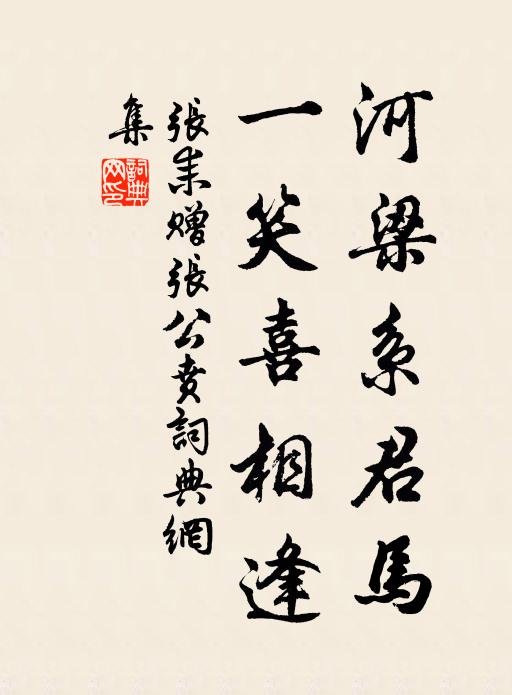 河梁系君馬
一笑喜相逢
張耒贈張公賁詞典網
集
詞典網印